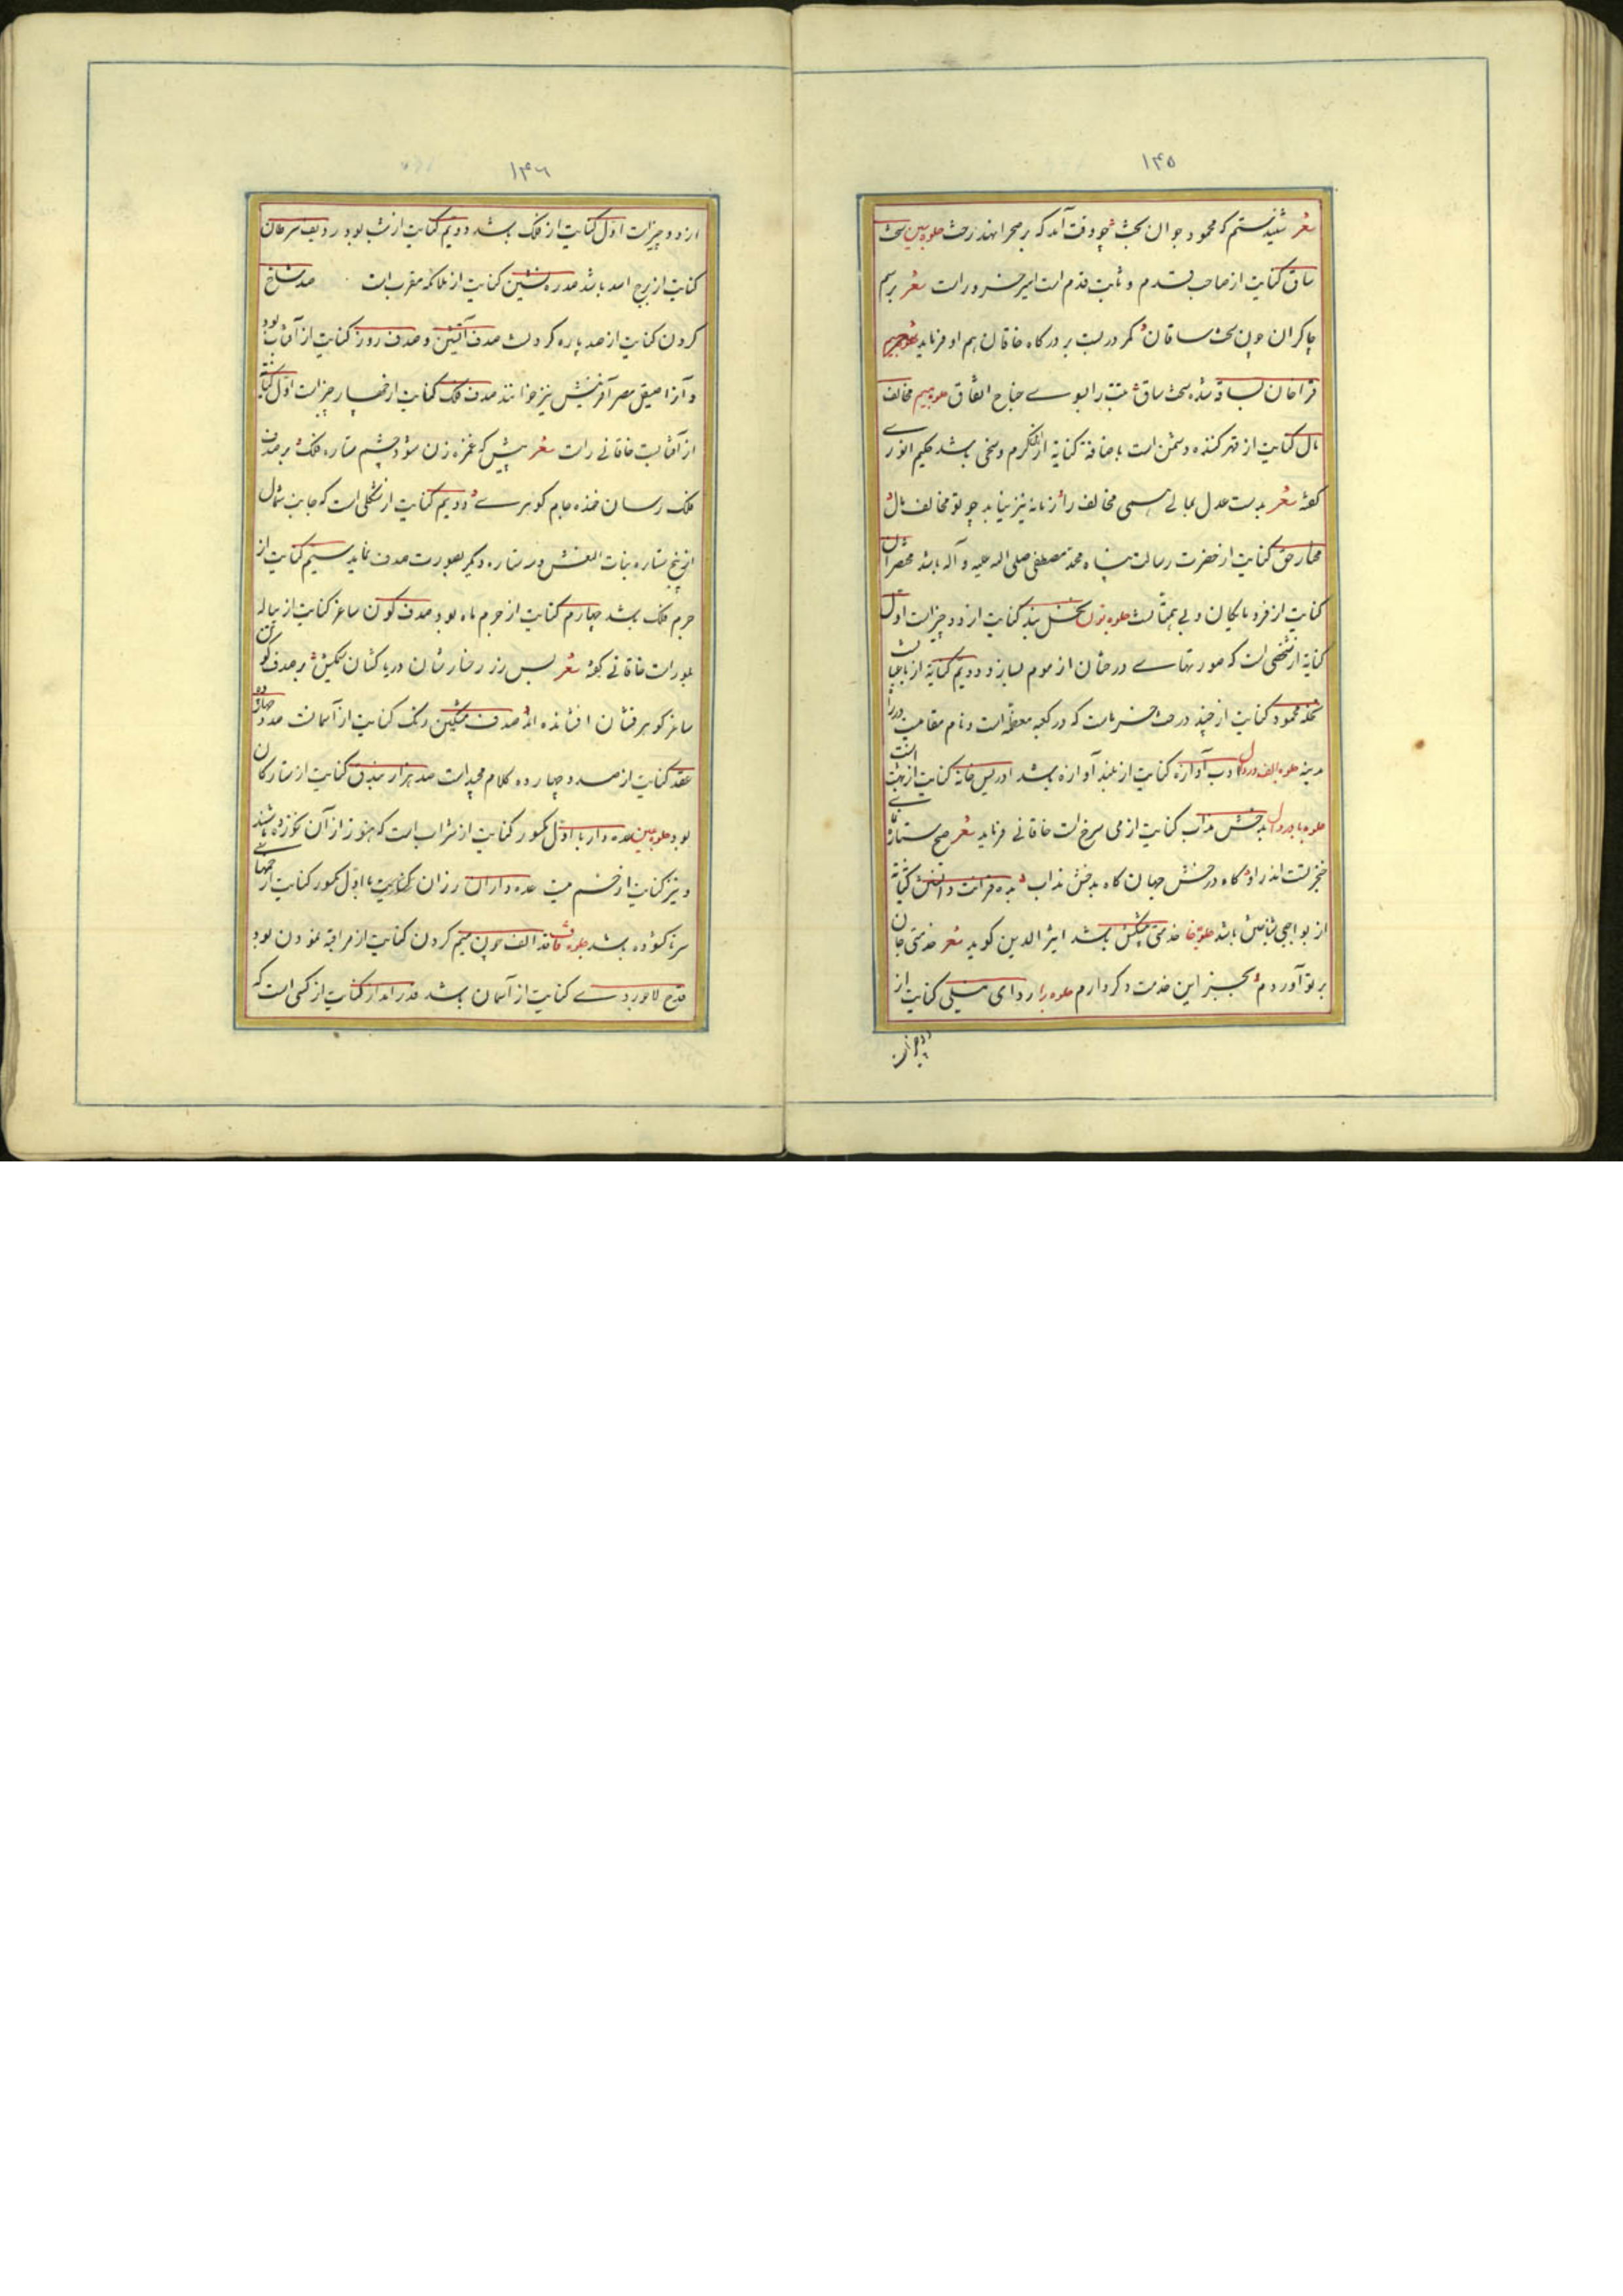 ۱۴۵
شعر شنیدستم که محمود جوان بخت چو وقت آمد که بر صحرا نهد رخت جلوه سین سخت
ساق کنایت از صاحب قدم و ثابت قدم است امیر خسرو راست شعر برسم
چاکران چون سخت ساقان کمر در بست بر درگاه خاقان هم او فرماید
قراخان شده سخت ساق جناح اتفاق جلوه میم مخالف
مال کنایت از قهر کننده دشمن است باضافة کنایة از کرم و سخی باشد حکیم انوری
گفته شعر بدست عدل بمالی همی مخالف را زمانه نیز نیابد چو تو مخالف مال
مختار حق کنایت از حضرت رسالت پناه محمد مصطفی صلی الله علیه و آله باشد مختصران
کنایت از فرومایگان و بی همتانست جلوه نون نخل بند کنایت از دو چیزاست اول
کنایة از شخصی است که صورتهای درختان از موم بسازد و دویم کنایة از باغبانست
نخله محمود کنایت از چند درخت خرماست که در کعبه معظمه است و نام مقامیست در راه
مدینه جلوه الف در دال ادب آوازه کنایت از بلند آوازه باشد ادریس خانه کنایت از بهشت است
جلوه با در دال بدخش مذاب کنایت از می سرخ است خاقانی فرماید شعر صبح ستاره
خنجر تست اندر او گاه درخش جهان گاه بدخش مذاب کنایة
از باشد جلوه خا خدمتی پیشکش باشد اثیر الدین گوید شعر خدمتی جان
بر تو آوردم بجز این خدمت دگر دارم جلوه را ردای نیلی کنایت از
دو چیزاست
۱۴۶
از دو چیزاست اول کنایت از فلک باشد دویم کنایت از شب بود ردیف سرطان
کنایت از برج اسد باشد صدره نشین کنایت از ملائکه مقرب است صد شاخ
کردن کنایت از صد پاره کردنست صدف آتشین و صدف روز کنایت از آفتاب بود
و آنرا صیقل مصر آفرینش نیز خوانند صدف فلک کنایت از چهار چیزاست اول کنایت
از آفتابست خاقانی راست شعر پیش که غمزه زن شود چشم ستاره فلک بر صدف
فلک رسان خنده جام گوهری و دویم کنایت از شکلی است که جانب شمال
از پنج ستاره بنات النعش و سه ستاره دیگر بصورت صدف نماید سیم کنایت از
جرم فلک باشد چهارم کنایت از جرم ماه بود صدف گون ساغر کنایت از پیاله
بلور است خاقانی گفته شعر پس رز رخسارشان دریا کشان سنگین بر صدف گون
ساغر گوهر فشان افشانده اند صدف مشکین رنگ کنایت از آسمانست صد و چهارده
عقد کنایت از صد و چهارده کلام مجید است صد هزار بیذق کنایت از ستارگان
بود جلوه عین عده دار با اول مکسور کنایت از شراب است که هنوز از آن نخورده باشند
و نیز کنایت از خم میست عده داران رزان کنایت با اول مکسور کنایت از خمهای
سرنا گشوده باشد جلوه قاف قد الف چون میم کردن کنایت از مراقبه نمودن بود
قدح لاجوردی کنایت از آسمان باشد قدر انداز کنایت از کسی است که